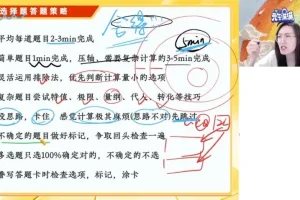 选择题答题策略
平均每道题目2-3min完成
简单题目1min完成，压轴、需要复杂计算的3-5min完成
灵活运用排除法，优先判断计算量小的选项
复杂题目尝试特值、极限、量纲、代入、转化等技巧
没思路，卡住，感觉计算极其麻烦(思路不对)先跳过
不确定的题目做好标记，争取回头检查一遍
多选题只选100%确定对的，不确定的不选
誊写答题卡时检查选项，标题，涂卡
15min